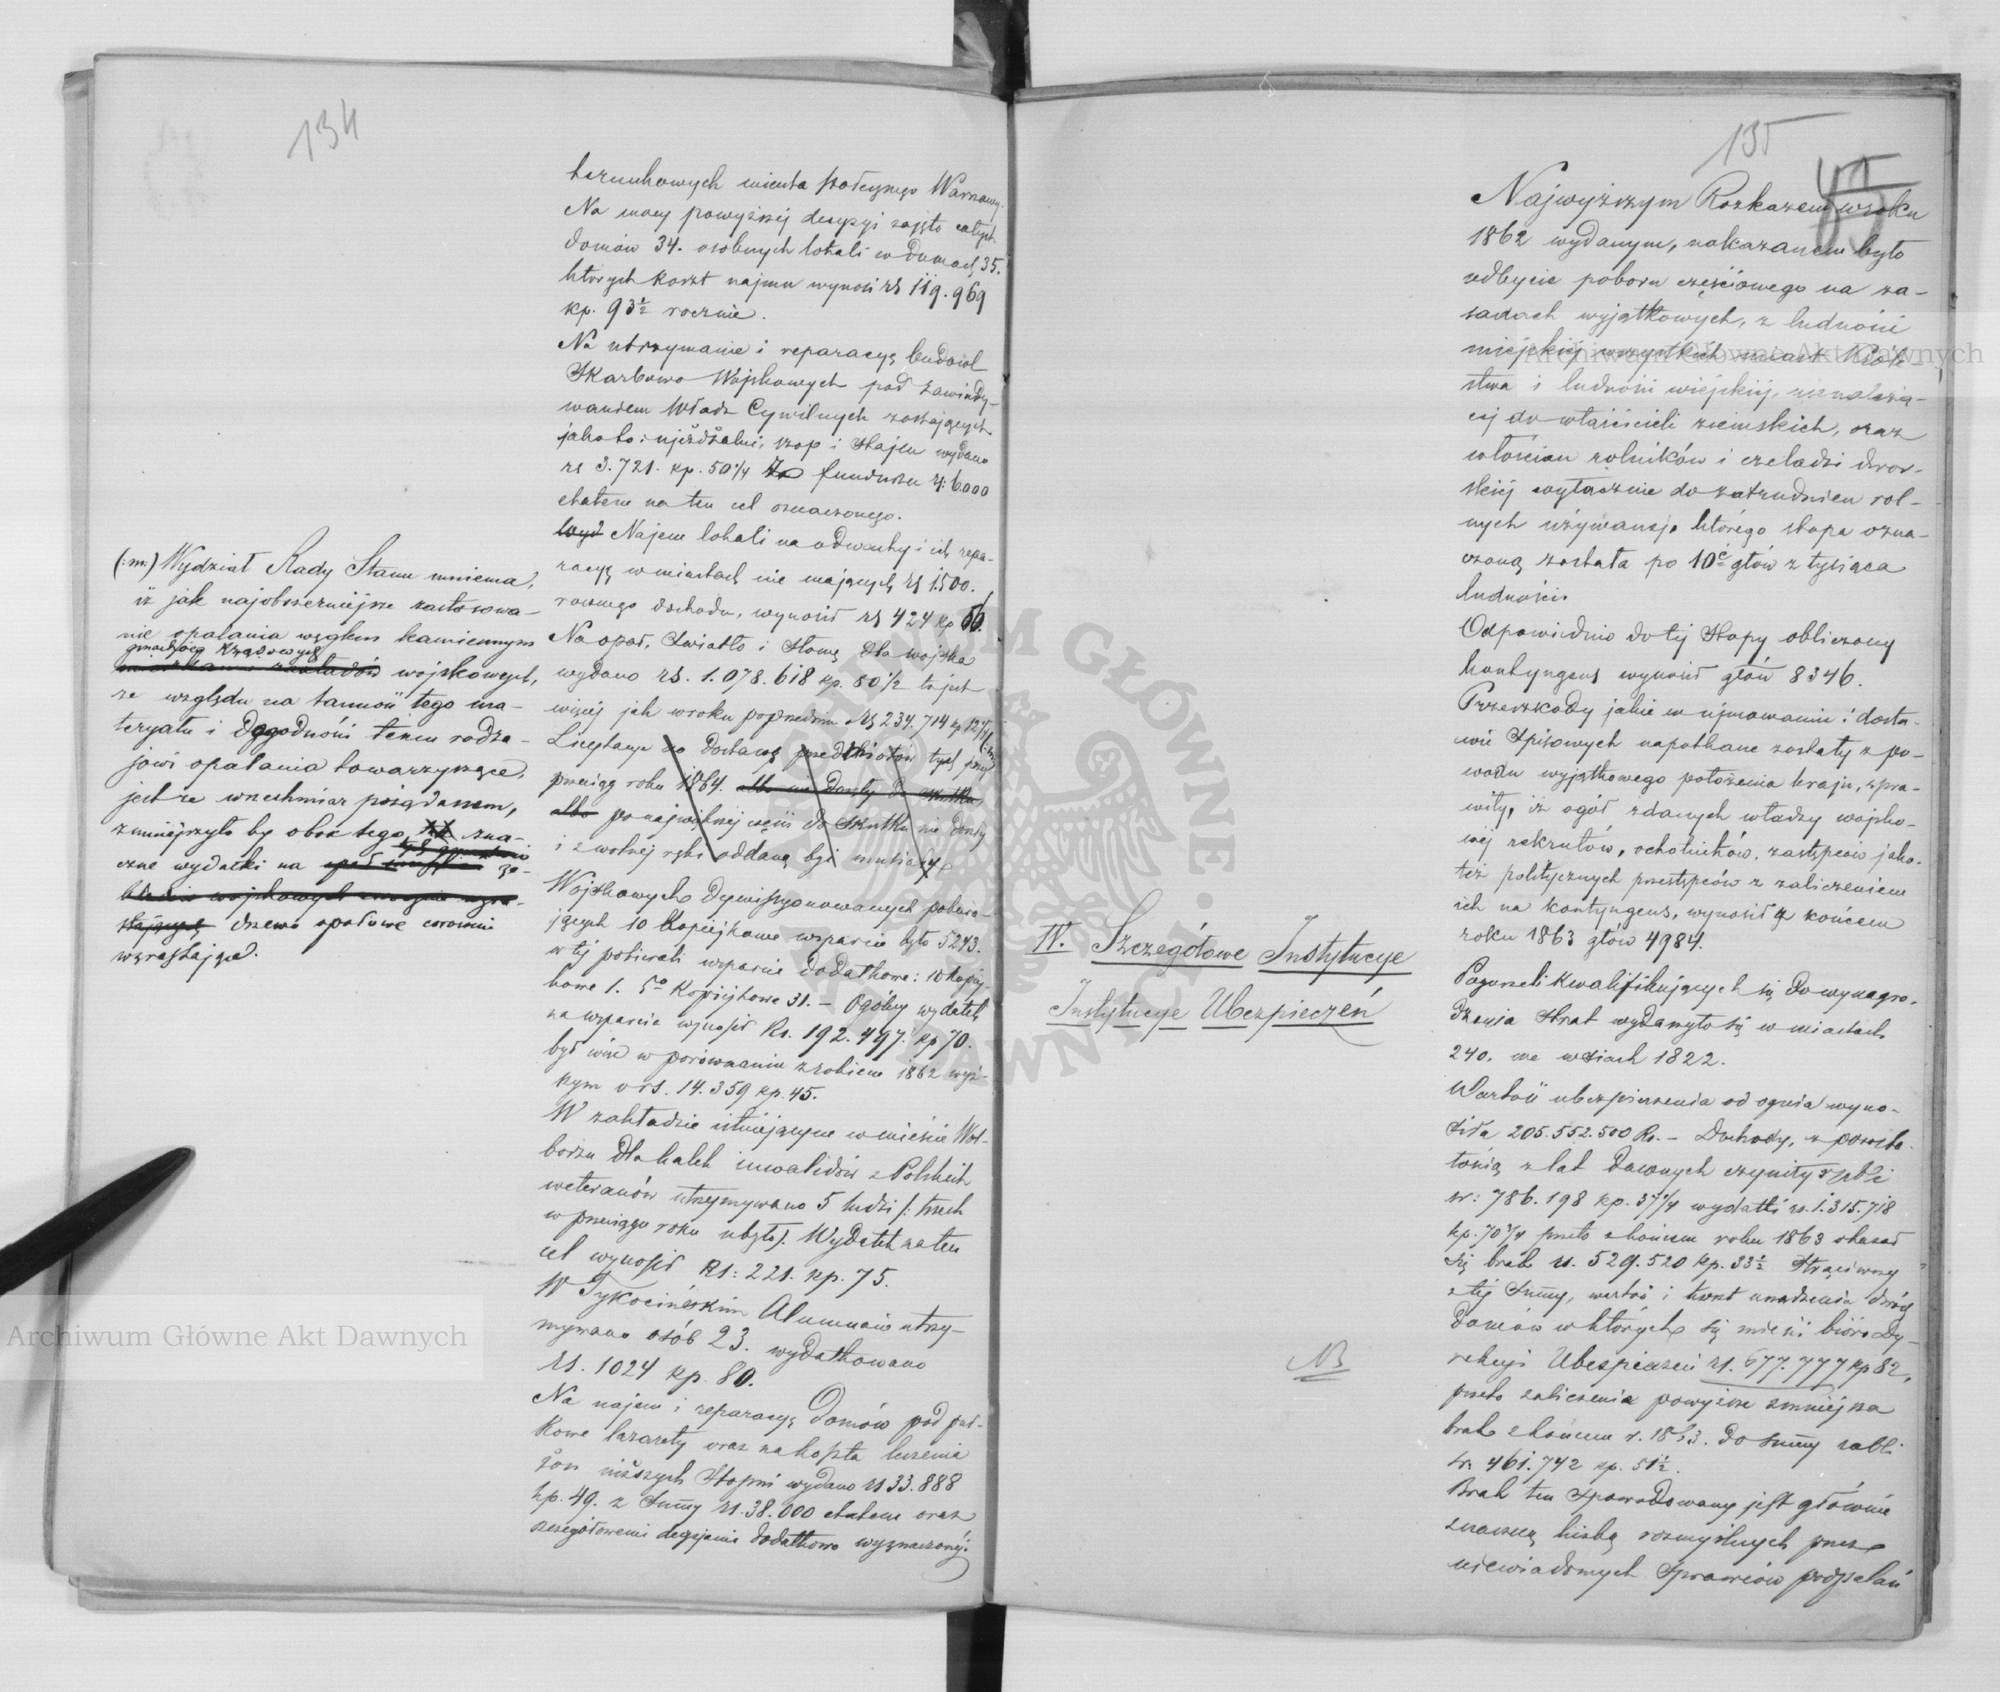 134
kwaterunkowych miasta stołecznego Warszawy.
Na mocy powyższej decyzyi zajęto całych
domów 34. osobnych lokali w domach 35.
których koszt najmu wynosi rs 119.969
kp. 93½ rocznie.
Na utrzymanie i reparacyę budowol
Skarbowo Wojskowych pod zawiady-
waniem Władz Cywilnych zostających
jako to: ujeżdżalni, szop i stajen wydano
rs 3.721. kp. 50¼ z funduszu rs: 6.000
etatem na ten cel oznaczonego.
Najem lokali na odwachy i ich repa-
racyę w miastach nie mających rs 1500.
rocznego dochodu, wynosił rs 424 kp 56.
Na opał, światło i słomę dla wojska
wydano rs. 1.078.618 kp. 80½ to jest
więcej jak w roku poprzednim rs 234.714 kp 12¼
Licytacye na dostawę przedmiotów tych przez
przeciąg roku 1864. albo nie doszły do skutku
albo po największej części do skutku nie doszły
i z wolnej ręki oddane być musiały
Wojskowych Dymissyonowanych pobiera-
jących 10 Kopiejkowe wsparcie było 5243.
w tej pobierali wsparcie dodatkowe: 10 kopiej-
kowe 1. 5º Kopiejkowe 31. – Ogólny wydatek
na wsparcie wynosił Rs. 192.497. kp 70.
był więc w porównaniu z rokiem 1862 więk-
szym o rs. 14.359 kp. 45.
W zakładzie istniejącym w mieście Wol-
borzu dla kalek inwalidów z Polskich
weteranów utrzymywano 5 ludzi /: trzech
w przeciągu roku ubyło). Wydatek na ten
cel wynosił Rs: 221. kp. 75.
W Tykocińskim Alumnacie utrzy-
mywano osób 23. wydatkowano
rs. 1024 kp. 80.
Na najem i reparacyę domów pod puł-
kowe lazarety oraz na koszta leczenia
żon niższych stopni wydano rs 33.888
kp. 49. z summy rs. 38.000 etatem oraz
szczegółowemi decyzjami dodatkowo wyznaczonej.
(:m:) Wydział Rady Stanu mniema,
iż jak najobszerniejsze zastosowa-
nie opalania węglem kamiennym
gmachów rządowych
wojskowych,
ze względu na taniość tego ma-
teryału i dogodności temu rodza-
jowi opalania towarzyszące,
jest ze wszechmiar pożądanem,
zmniejszyło by obok tego zna-
czne wydatki na
drzewo opałowe corocznie
wzrastające.
135
Najwyższym Rozkazem w roku
1862 wydanym, nakazanem było
odbycie poboru częściowego na za-
sadach wyjątkowych, z ludności
miejskiej wszystkich miast Króle-
stwa i ludności wiejskiej, nienależą-
cej do właścicieli ziemskich, oraz
włościan rolników i czeladzi dwor-
skiej wyłącznie do zatrudnień rol-
nych używanej, którego stopa ozna-
czoną została po 10 głów z tysiąca
ludności.
Odpowiednio do tej stopy obliczony
kontyngens wynosił głów 8346.
Przeszkody jakie w ujmowaniu i dosta-
wie spisowych napotkane zostały z po-
wodu wyjątkowego położenia kraju, spra-
wiły, iż ogół zdanych władzy wojsko-
wej rekrutów, ochotników, zastępców jako-
też politycznych przestępców z zaliczeniem
ich na kontyngens, wynosił z końcem
roku 1863 głów 4984.
IV. Szczegółowe Instytucye
Instytucye Ubezpieczeń
Pogorzeli kwalifikujących się do wynagro-
dzenia strat wydarzyło się w miastach
240. we wsiach 1822.
Wartość ubezpieczenia od ognia wyno-
siła 205.552.500 Rs. – Dochody, z pozosta-
łością z lat dawnych czyniły rubli
sr: 786.198 kp. 37¼ wydatki rs. 1.315.718
kp. 70¾ przeto z końcem roku 1863 okazał
się brak rs. 529.520 kp. 33½ Strąciwszy
z tej summy, wartość i koszt urządzenia dwóch
domów w których się mieści biuro Dy-
rekcyi Ubezpieczeń rs. 677.777 kp 82,
przeto zaliczenia powyższe zmniejsza
brak z końcem r. 1863. do summy rubli
sr. 461.742 kp. 51½.
NB
Brak ten spowodowany jest głównie
znaczną liczbą rozmyślnych przez
niewiadomych sprawców podpaleń
Archiwum Główne Akt Dawnych
Archiwum Główne Akt Dawnych
ARCHIWUM GŁÓWNE AKT DAWNYCH